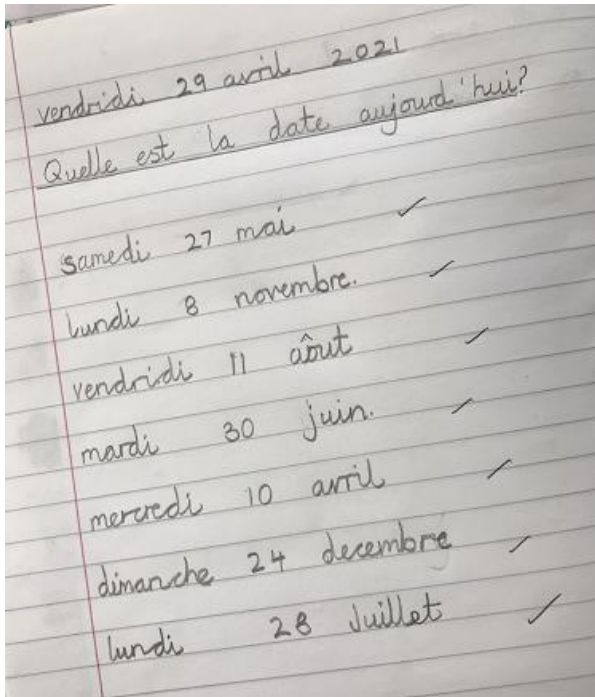 vendridi 29 avril 2021
Quelle est la date aujourd'hui?
samedi 27 mai
lundi 8 novembre.
vendridi 11 aôut
mardi 30 juin.
mercredi 10 avril
dimanche 24 decembre
lundi 28 Juillet